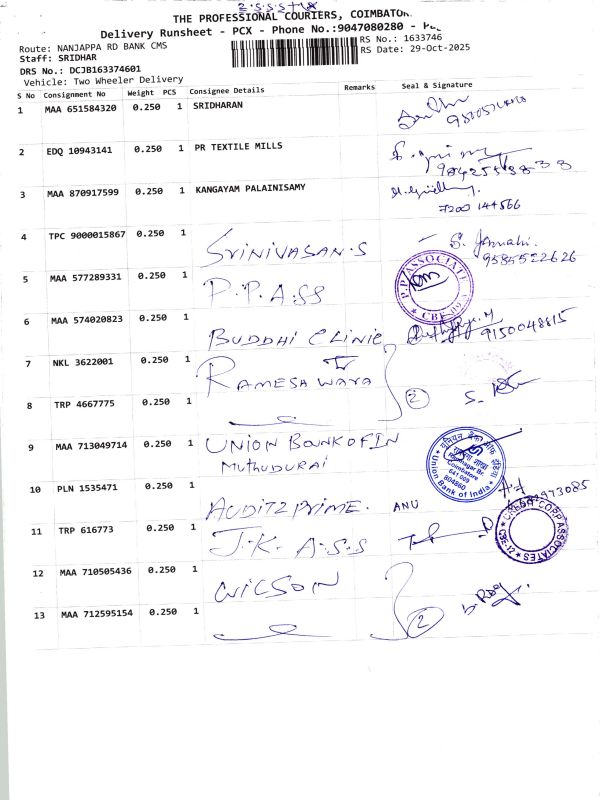 THE PROFESSIONAL COURIERS, COIMBATOR
Delivery Runsheet - PCX - Phone No.:9047080280 -
Route: NANJAPPA RD BANK CMS
RS No.: 1633746
Staff: SRIDHAR
RS Date: 29-Oct-2025
DRS No.: DCJB163374601
Vehicle: Two Wheeler Delivery
S No Consignment No Weight PCS Consignee Details Remarks Seal & Signature
1 MAA 651584320 0.250 1 SRIDHARAN
2 EDQ 10943141 0.250 1 PR TEXTILE MILLS
3 MAA 870917599 0.250 1 KANGAYAM PALAINISAMY
7200 144566
4 TPC 9000015867 0.250 1 SRINIVASAN.S
9585522626
5 MAA 577289331 0.250 1 P.P.ASS
P.P. ASSOCIATE
6 MAA 574020823 0.250 1 BUDDHI CLINIC
9150048815
7 NKL 3622001 0.250 1 RAMESHWARA
8 TRP 4667775 0.250 1
2
9 MAA 713049714 0.250 1 UNION BANK OF IN
MUTHUDURAI
Coimbatore
641 009
Union Bank of India
10 PLN 1535471 0.250 1 AUDITZPRIME. ANU
11 TRP 616773 0.250 1 J.K. ASS
CREDIT CORP ASSOCIATES
12 MAA 710505436 0.250 1 WILSON
13 MAA 712595154 0.250 1
2